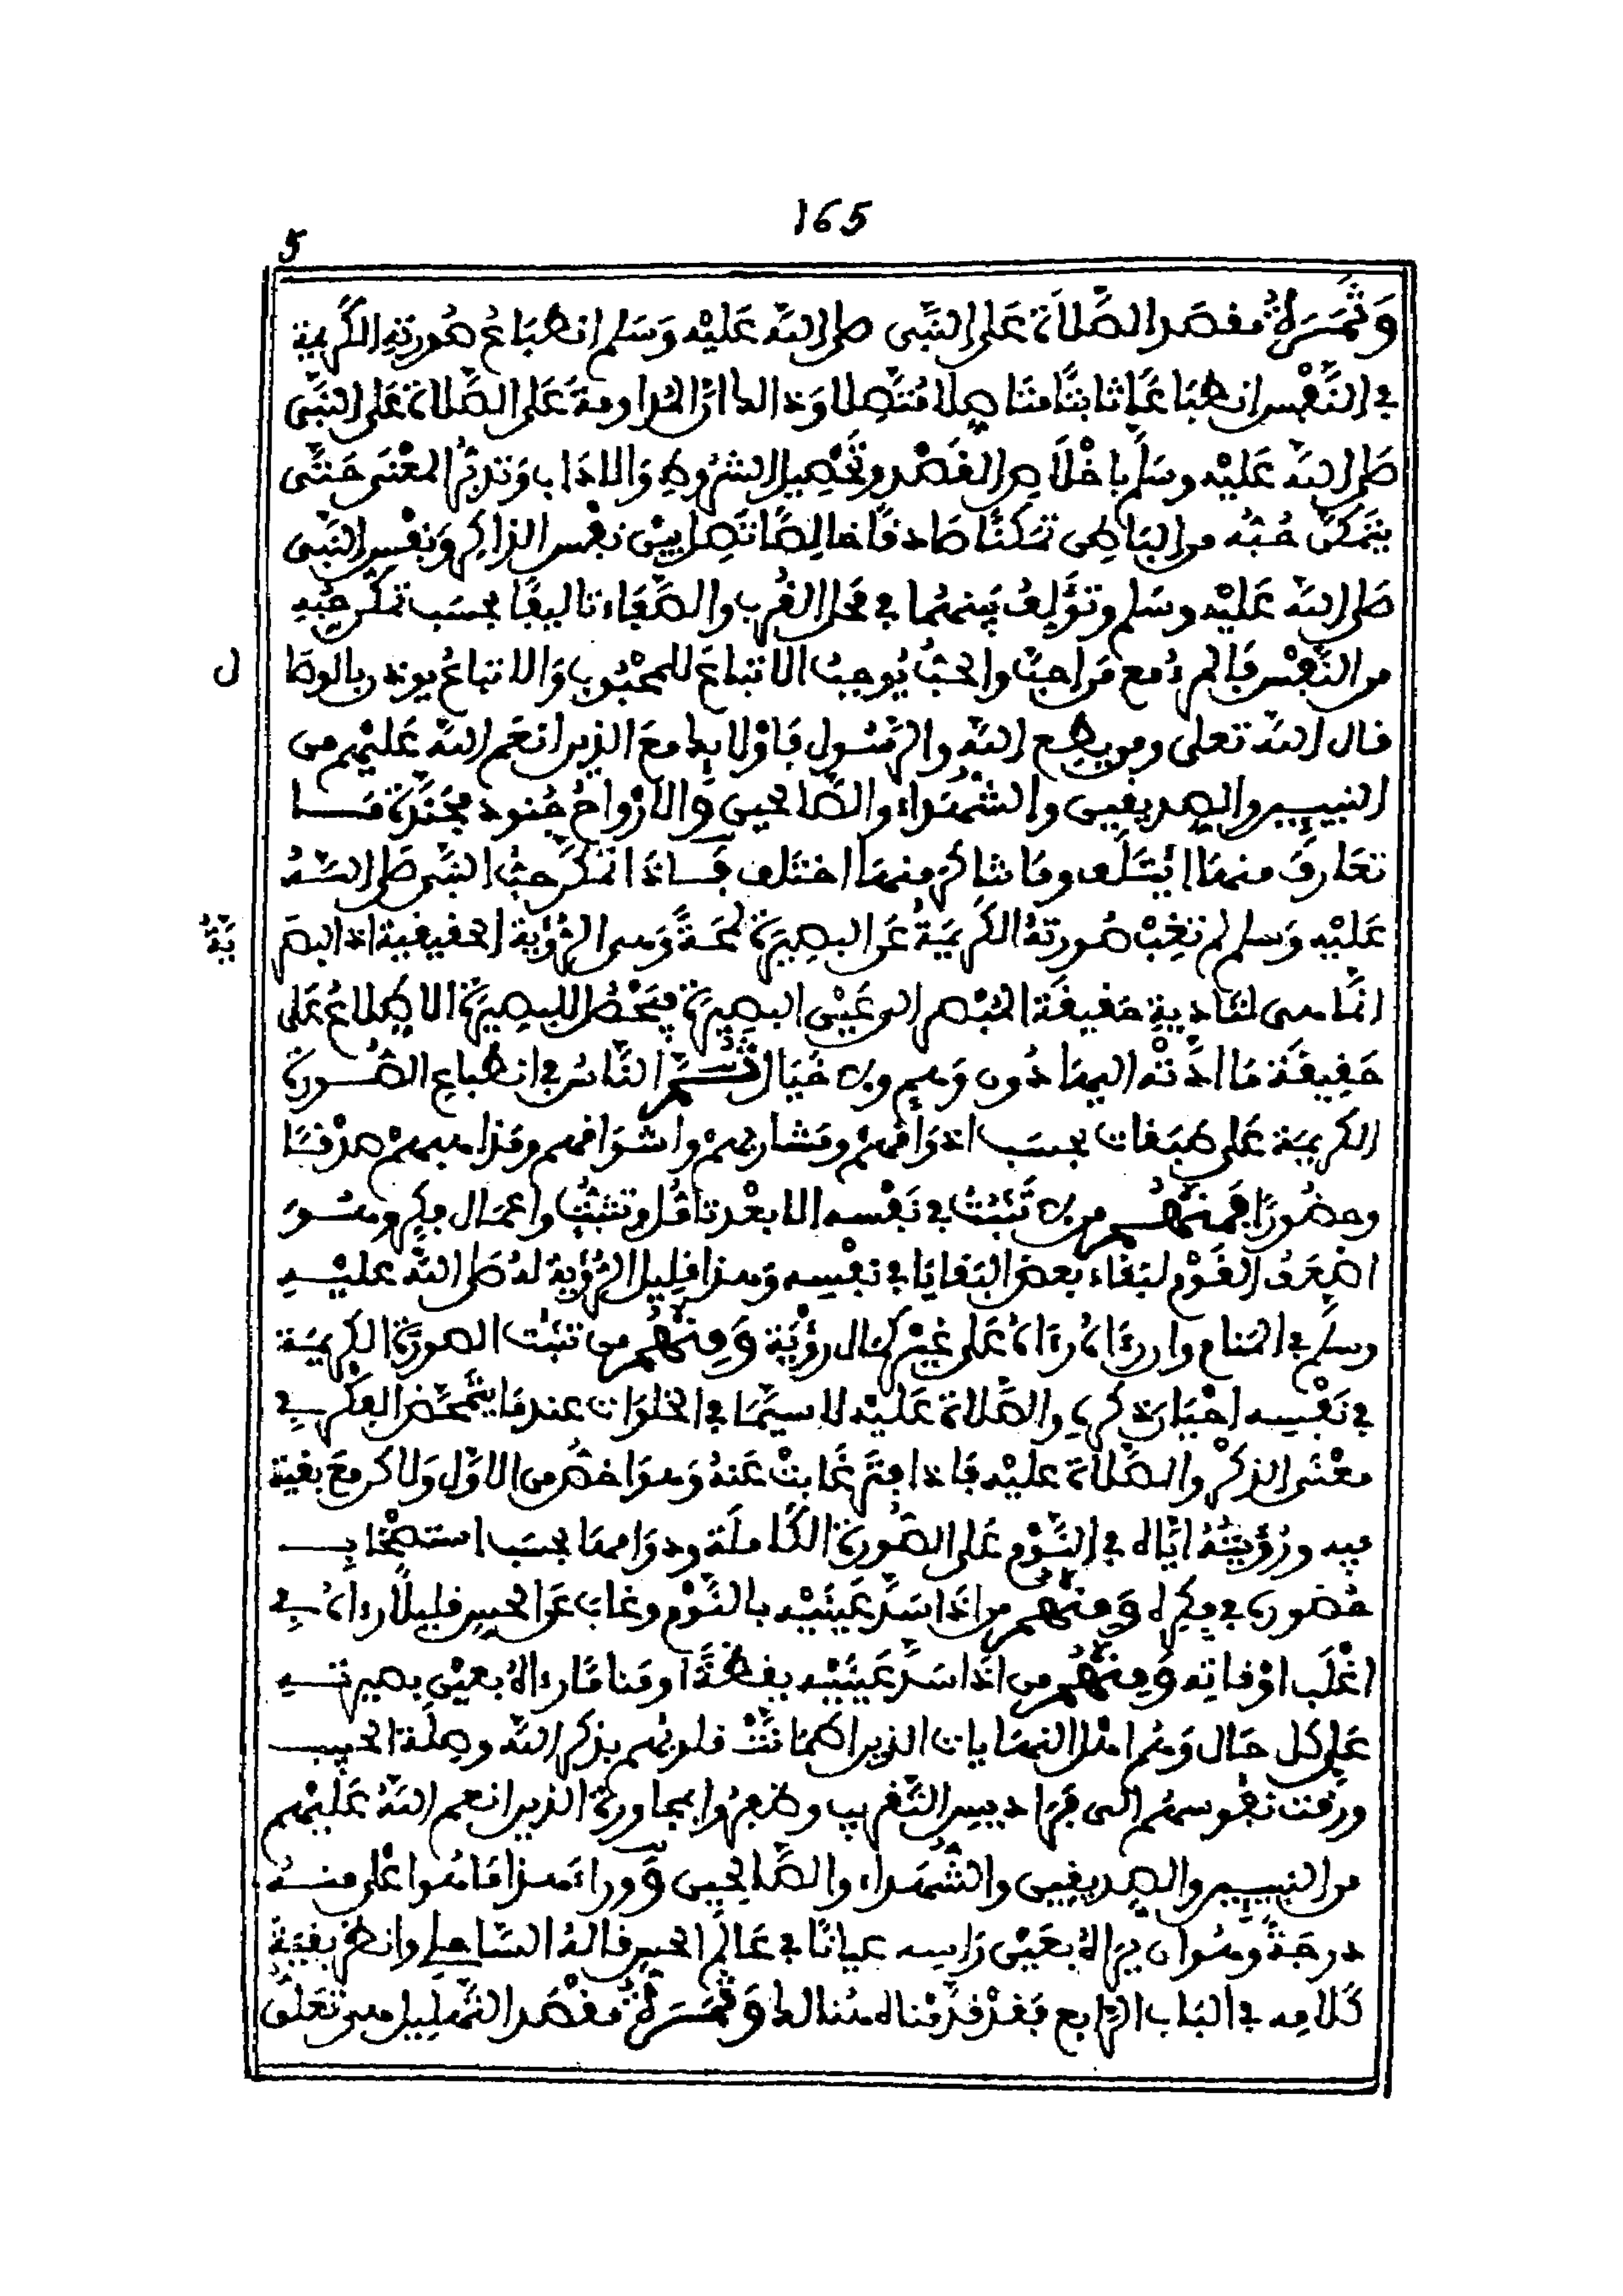 165
5
وَثَمَرَةُ مقصَد الصَّلاَة عَلى النَّبى صلى اللّه عَليْه وَسَلم انطبَاعُ صُورَتِهِ الكَريمة
في النَّفْس انطبَاعًا ثابتًا متَاصِلا مُتَّصِلا وَذالط انَّ المُداومةَ عَلى الصَّلاة عَلى النَّبى
صَلى اللّه عَليْه وسَلَّم باخْلَاصِ القَصْد وتَحْصِيل الشرُوطِ وَالادَاب وَتدبُّر المعْنى حَتَّى
يتَمكنَ حُبّهُ من البَاطِن تمَكنًا صَادقًا خالِصًا تَصِل بيْن نفْس الذاكِر وَنفْسِ النَّبى
صَلى اللّه عَليْه وسَلم وتؤَلِفُ بَينهُما في محَل القُرب والصَّفَاء تاليفًا بحسَب تمَكن حُبِّهِ
من النَّفْس فَالمرءُ مع مَن احبَّ والحُبّ يُوجِبُ الاتبَاعَ للمحْبُوبِ وَالاتباعُ يوذن بالوصَا
ل
قال اللّه تعلى ومن يطِع اللّه والرَّسُول فَاوْلائِط مَعَ الذين انعَم اللّه عَليْهِم من
النبيـين والصِديقين والشُّهدَاء والصَّالحين وَالأرْواحُ جُنود مجَندَة فمَــا
تعَارفَ منهَا ائْتَلَف ومَا تناكر منهَا اختلف فَــاذَا تمَكنَ حبُّ النَّبى صَلى اللـه
عَليْه وَسلم لم تغِبْ صُورتُهُ الكريمَةُ عَن البصِيرَة لمحَةً وَهى الرُّؤيَة الحقيقية اذ البصَ
يَةُ
انَّما هى لتَادِيةِ حَقيقَة المُبْصَر الى عَيْن البصِيرَة فيَحْصُل للبصِيرَة الاطِلاعُ عَلى
حَقِيقَة مَا ادَّتْه اليهَا دُون وَهم ولا خَيَال ثُــمَّ النَّاسُ في انطبَاعِ الصُّـورَة
الكريمَة عَلى طبَقات بحسَب اذوَاقهمْ ومَشاربهمْ واشوَاقهم ومَذاهبهمْ صدْقًا
وحضُورًا فَمنْهُــم من لا تَثبُتُ في نَفْسه الا بعْد تامُّل وتثبُّت واعمَال فِكر وهــوَ
اضعَفُ القَوْم لبَقاء بعض البَقايَا في نفْسِه وَهذا قلِيل الرُّؤيَة لهُ صَلى اللّه عليْــهِ
وسلَّم في المنَام وان رءَاهُ رءَاهُ عَلى غيْر كمَال رؤْيَة وَمِنْهُم من تثبُت الصورَة الكريمَة
في نَفْسِه احْيَان ذكره والصَّلاة عَليْه لا سيَّمَا في الخلوَات عند مَا يتَمحَّض الفِكْر في
معْنَى الذكْر والصَّلاة عليْه فَاذا فتَر غَابتْ عَنهُ وَهوَ اخصُّ من الاوَّل وَلاكن مَعَ بقيةٍ
فيه ورُؤيتُهُ ايَّاه في النَّوْم عَلى الصُّورَة الكَاملَة ودوَامهَا بحسَب استحْضَـارِ
حُضوره في فِكره وَمِنْهم من اذَا سَدَّ عَيْنَيْه بالنَّوْم وغاب عَن الحِسِ قليلًا رءاهُ في
اغْلَب اوْقاتِه وَمِنْهُم من اذَا سَدَّ عَيْنَيْه يقظَةً او مَنامًا رءاهُ بعيْن بصيرتــهِ
عَلى كل حَال وَهُم اهْل النهَايات الذين اطمَانَّتْ قلوبهم بذكر اللّه وصِلَة الحبيب
ورَقت نفُوسهُم الى فرَاديس التَّقريب وظفِرُوا بمجاورة الذين انعم اللّهُ عَليْهم
من النبيـين والصِديقين والشُّهدَاء والصَّالِحين وَوراء هذا مَا هُوا عْلى منـهُ
درجَةً وهُو ان يرَاهُ بعَيْن رَاسِه عيانًا في عَالم الحس قالهُ السَّاحِلى وانظر بقيةَ
كَلامِه في البَاب الرابع فقدْ قدَّمْناه هُنالط وَثَمَرَةُ مقْصَد التَّهْلِيل هى تعَلقُ